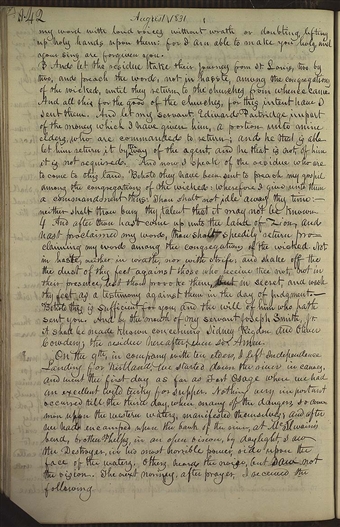 142 August 1831.
my word with loud voices without wrath or doubting, lifting
up holy hands upon them: for I am able to make you holy, and
your sins are forgiven you.
And let the residue take their journey from St Louis, two by
two, and preach the word, not in haste, among the congregations
of the wicked, until they return to the churches from whence came.
And all this for the good of the churches, for this intent have I
sent them. And let my servant Edward Partridge impart
of the money which I have given him, a portion unto mine
elders, who are commanded to return; and he that is able
let him return it by the way of the agent, and he that is not of him
it is not required. And now I speak of the residue who are
to come to this land. Behold they have been sent to preach my gospel
among the congregations of the wicked: wherefore I give unto them
a commandment thus: Thou shalt not idle away thy time:
neither shalt thou bury thy talent that it may not be known.
And after thou hast come up unto the land of Zion, and
hast proclaimed my word, thou shalt speedily return pro-
claiming my word among the congregations of the wicked. Not
in haste, neither in wrath, nor with strife: and shake off the
the dust of thy feet against those who receive thee not, not in
their presence, lest thou provoke them, but in secret, and wash
thy feet as a testimony against them in the day of judgment.
Behold this is sufficient for you and the will of him who hath
sent you. And by the mouth of my servant Joseph Smith, Jr.
it shall be made known concerning Sidney Rigdon and Oliver
Cowdery, the residue hereafter, even so Amen.
On the 9th, in company with ten elders, I left Independence
Landing for Kirtland. We started down the river in canoes,
and went the first day as far as Fort Osage where we had
an excellent wild turkey for supper. Nothing very important
occurred till the third day, when many of the dangers so com-
mon upon the western waters, manifested themselves; and after
we had encamped upon the bank of the river, at McIlwain's
bend, brother Phelps, in an open vision, by daylight, saw
the Destroyer, in his most horrible power, ride upon the
face of the waters. Others heard the noise, but saw not
the vision. The next morning, after prayer, I received the
following